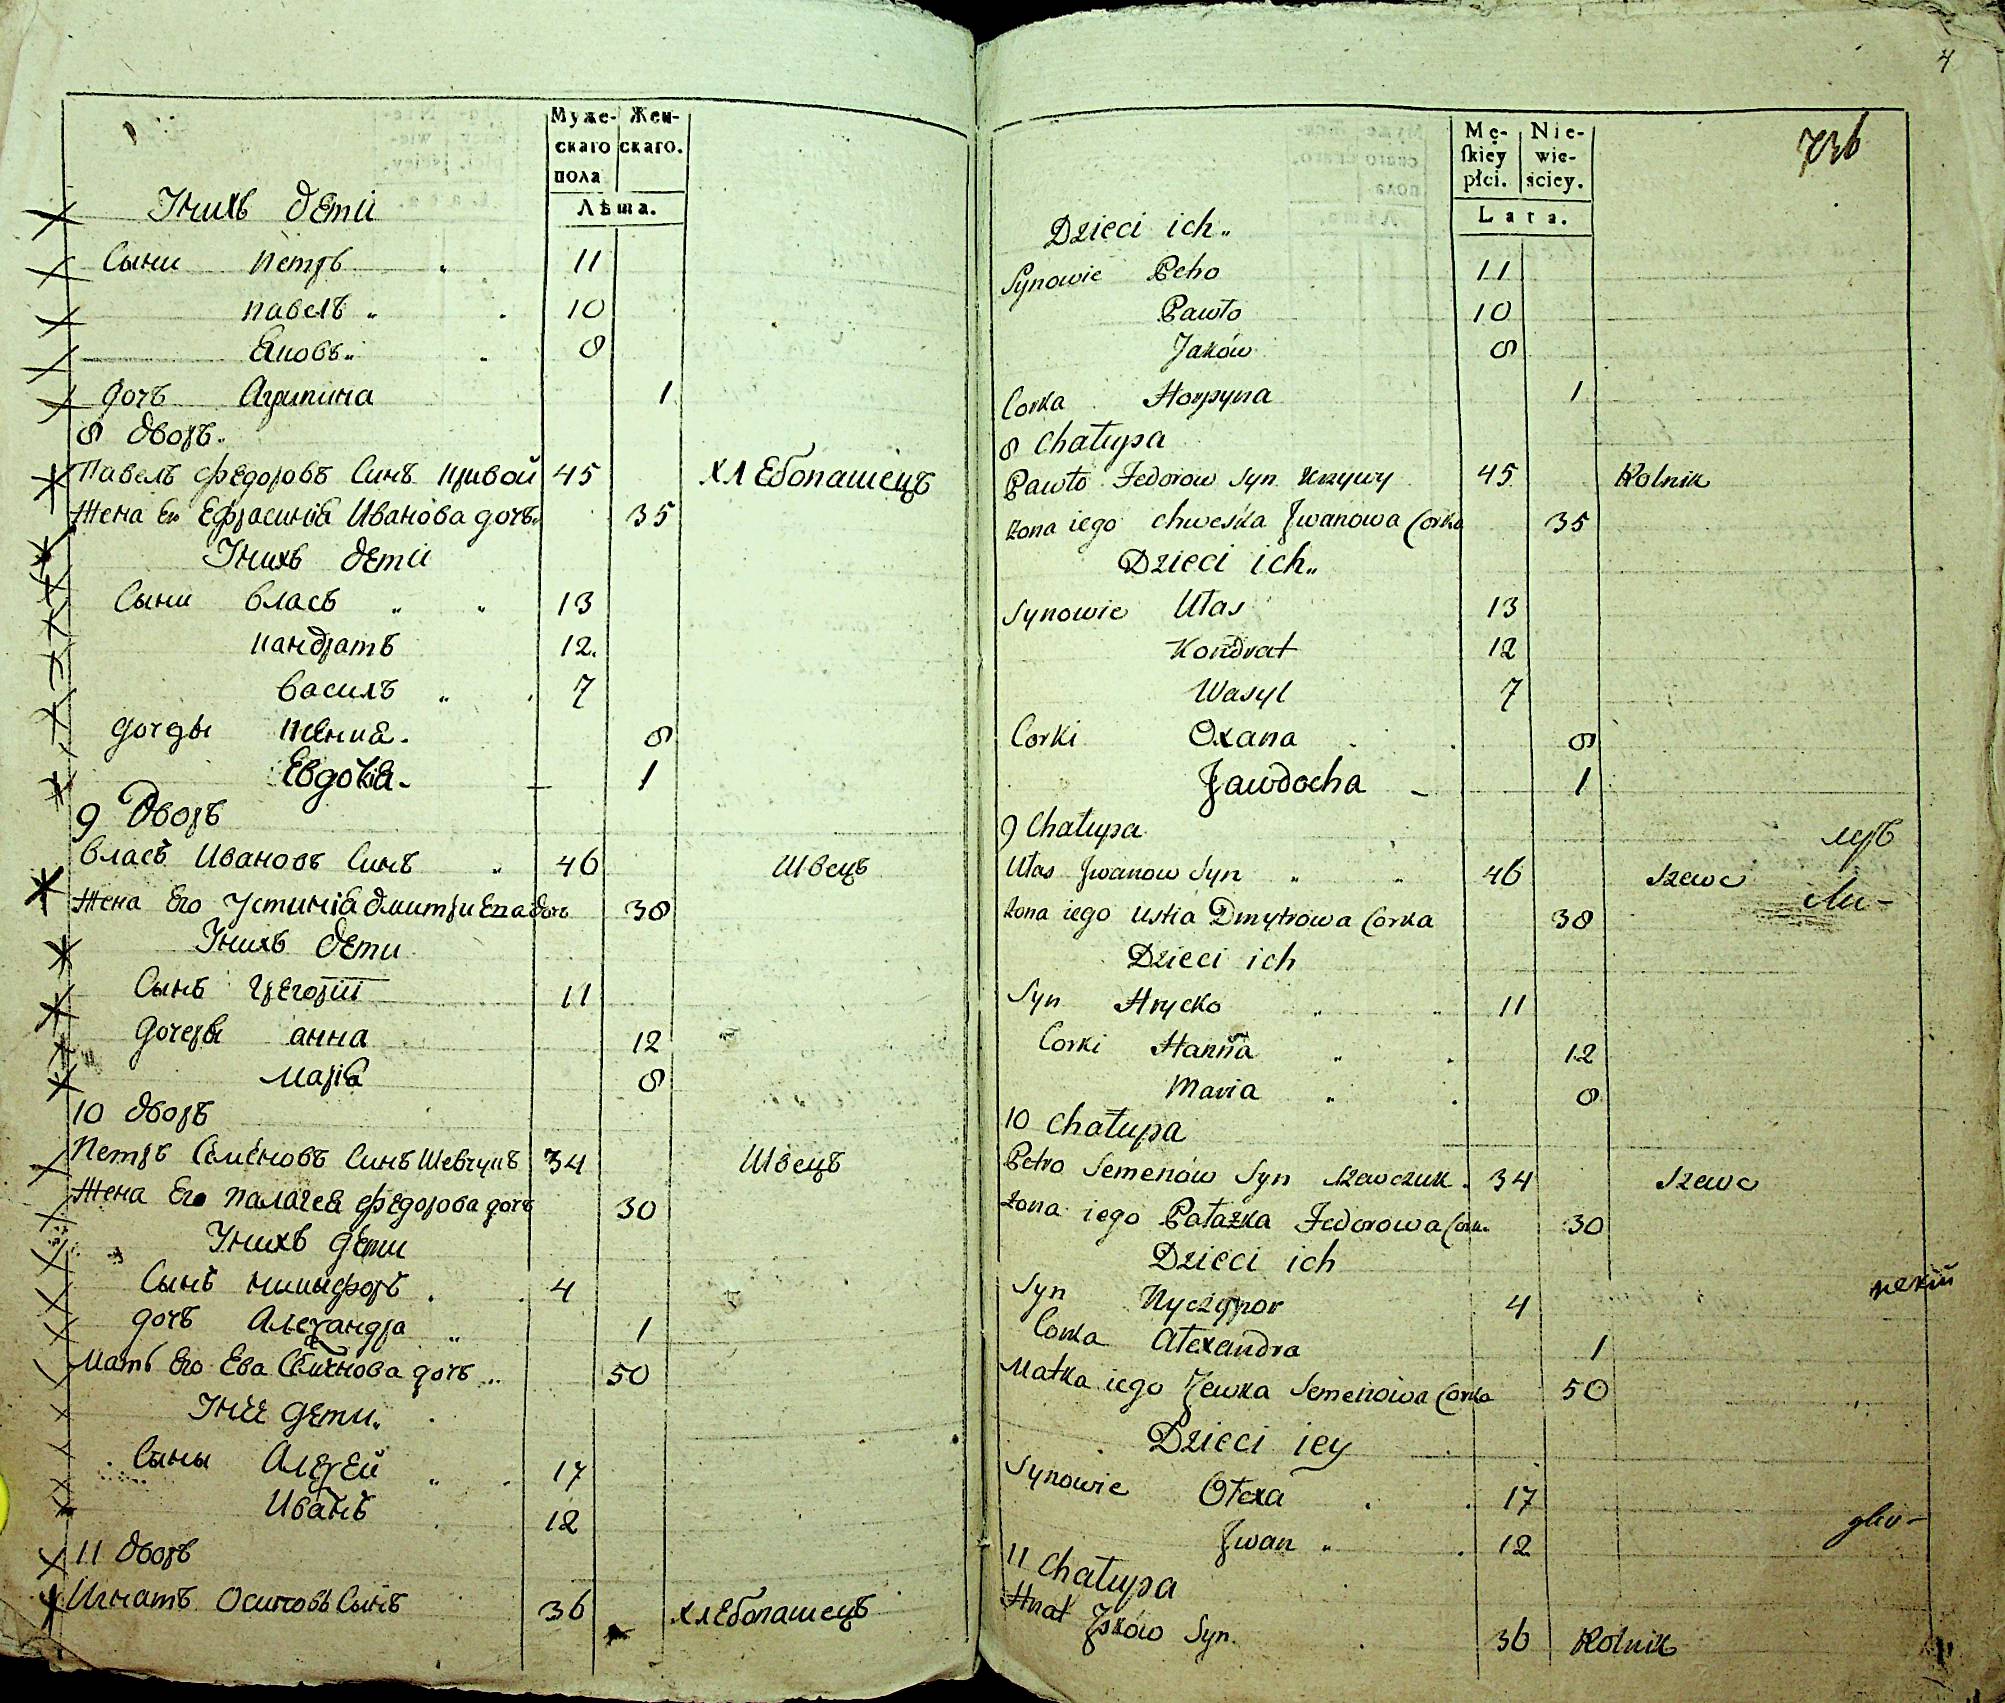 Муже-
скаго
пола
Жен-
скаго.
Лѣта.
Унихъ дети
Сыни Петръ 11
Павелъ 10
Яковъ 8
дочь Агрипина 1
8 дворъ.
Павелъ Федоровъ Синъ Кривой 45 ХлЕбопашецъ
Жена Ею Ефрасинія Иванова дочь 35
Унихъ дети
Сыни Власъ 13
Кандратъ 12.
Василъ 7
дочеры Ксения. 8
Евдокія 1
9 Дворъ
Власъ Ивановъ Синъ 46 Швецъ
Жена Его Устинія дмитриева дочь 38
Унихъ дети
Сынъ Григорій 11
дочеры анна 12
Марія 8
10 дворъ
Петръ Семеновъ Синъ Шевчукъ 34 Швецъ
Жена Его Палагея Федорова дочь 30
Унихъ дети
Сынъ Никифоръ 4
дочь Алехандра 1
Мать Его Ева Семенова дочь 50
Унее дети
Сыны Алексей 17
Иванъ 12
11 дворъ
Игнатъ Осиповъ Сынъ 36 хлЕбопашецъ
4
736
Mę-
ſkiey
płci.
Nie-
wie-
ściey.
Lata.
Dzieci ich
Synowie Petro 11
Pawło 10
Jaków 8
Corka Horpyna 1
8 Chałupa
Pawło Fedorow Syn Krzywy 45 Rolnik
Żona iego Chweska Jwanowa Corka 35
Dzieci ich
Synowie Ułas 13
Kondrat 12
Wasyl 7
Corki Oxana 8
Jawdocha 1
9 Chałupa
Ułas Jwanow Syn 46 Szewc
Żona iego Ustia Dmytrowa Corka 38
Dzieci ich
Syn Hrycko 11
Corki Hanna 12
Maria 8
10 Chałupa
Petro Semenów Syn Szewczuk 34 Szewc
Żona iego Pałażka Fedorowa Cork. 30
Dzieci ich
Syn Nyczypor 4
Corka Ałexandra 1
Matka iego Jewka Semenowa Corka 50
Dzieci iey
Synowie Ołexa 17
Jwan 12
11 Chałupa
Hnat Jsków Syn 36 Rolnik